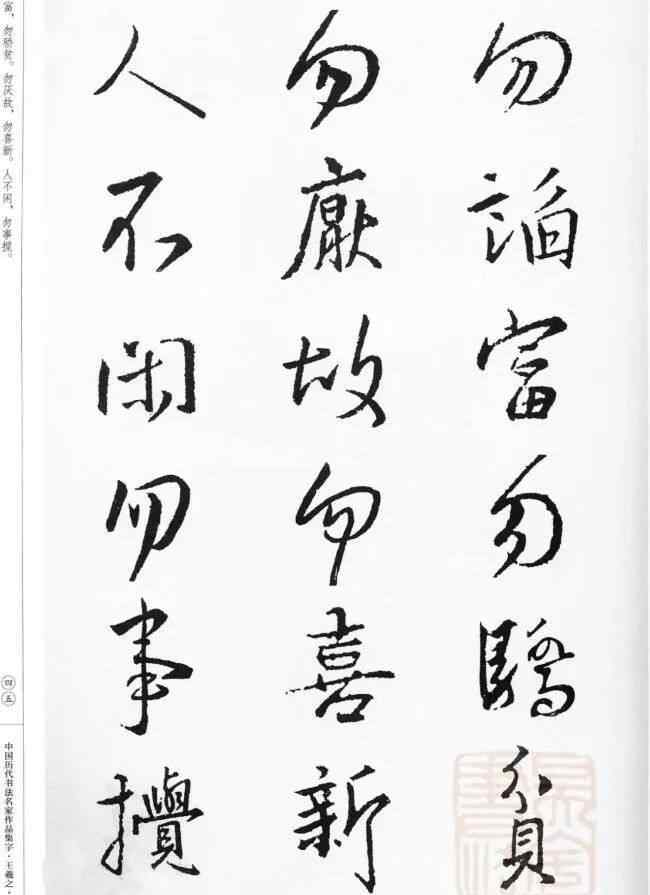 勿諂富勿驕貧
勿厭故勿喜新
人不閑勿事攪
富，勿骄贫。勿厌故，勿喜新。人不闲，勿事搅。
四五
中国历代书法名家作品集字·王羲之·